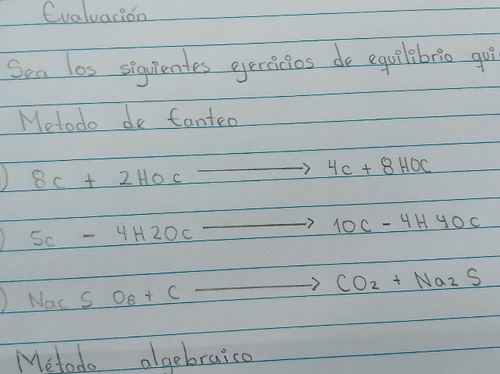 Evaluación
Sea los siguientes ejercicios de equilibrio qui
Metodo de tanteo
) 8c + 2HO c → 4c + 8HOC
) 5c - 4H2Oc → 10C - 4H4OC
) Nac S O8 + C → CO2 + Na2 S
Método algebraico